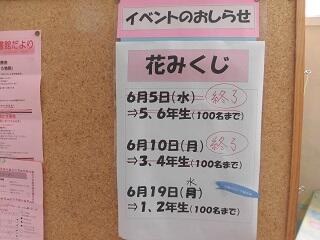 イベントのおしらせ
花みくじ
6月5日(水) 終了
⇒5、6年生(100名まで)
6月10日(月) 終了
⇒3、4年生(100名まで)
水
6月19日(月)
⇒1、2年生(100名まで)
書館だより